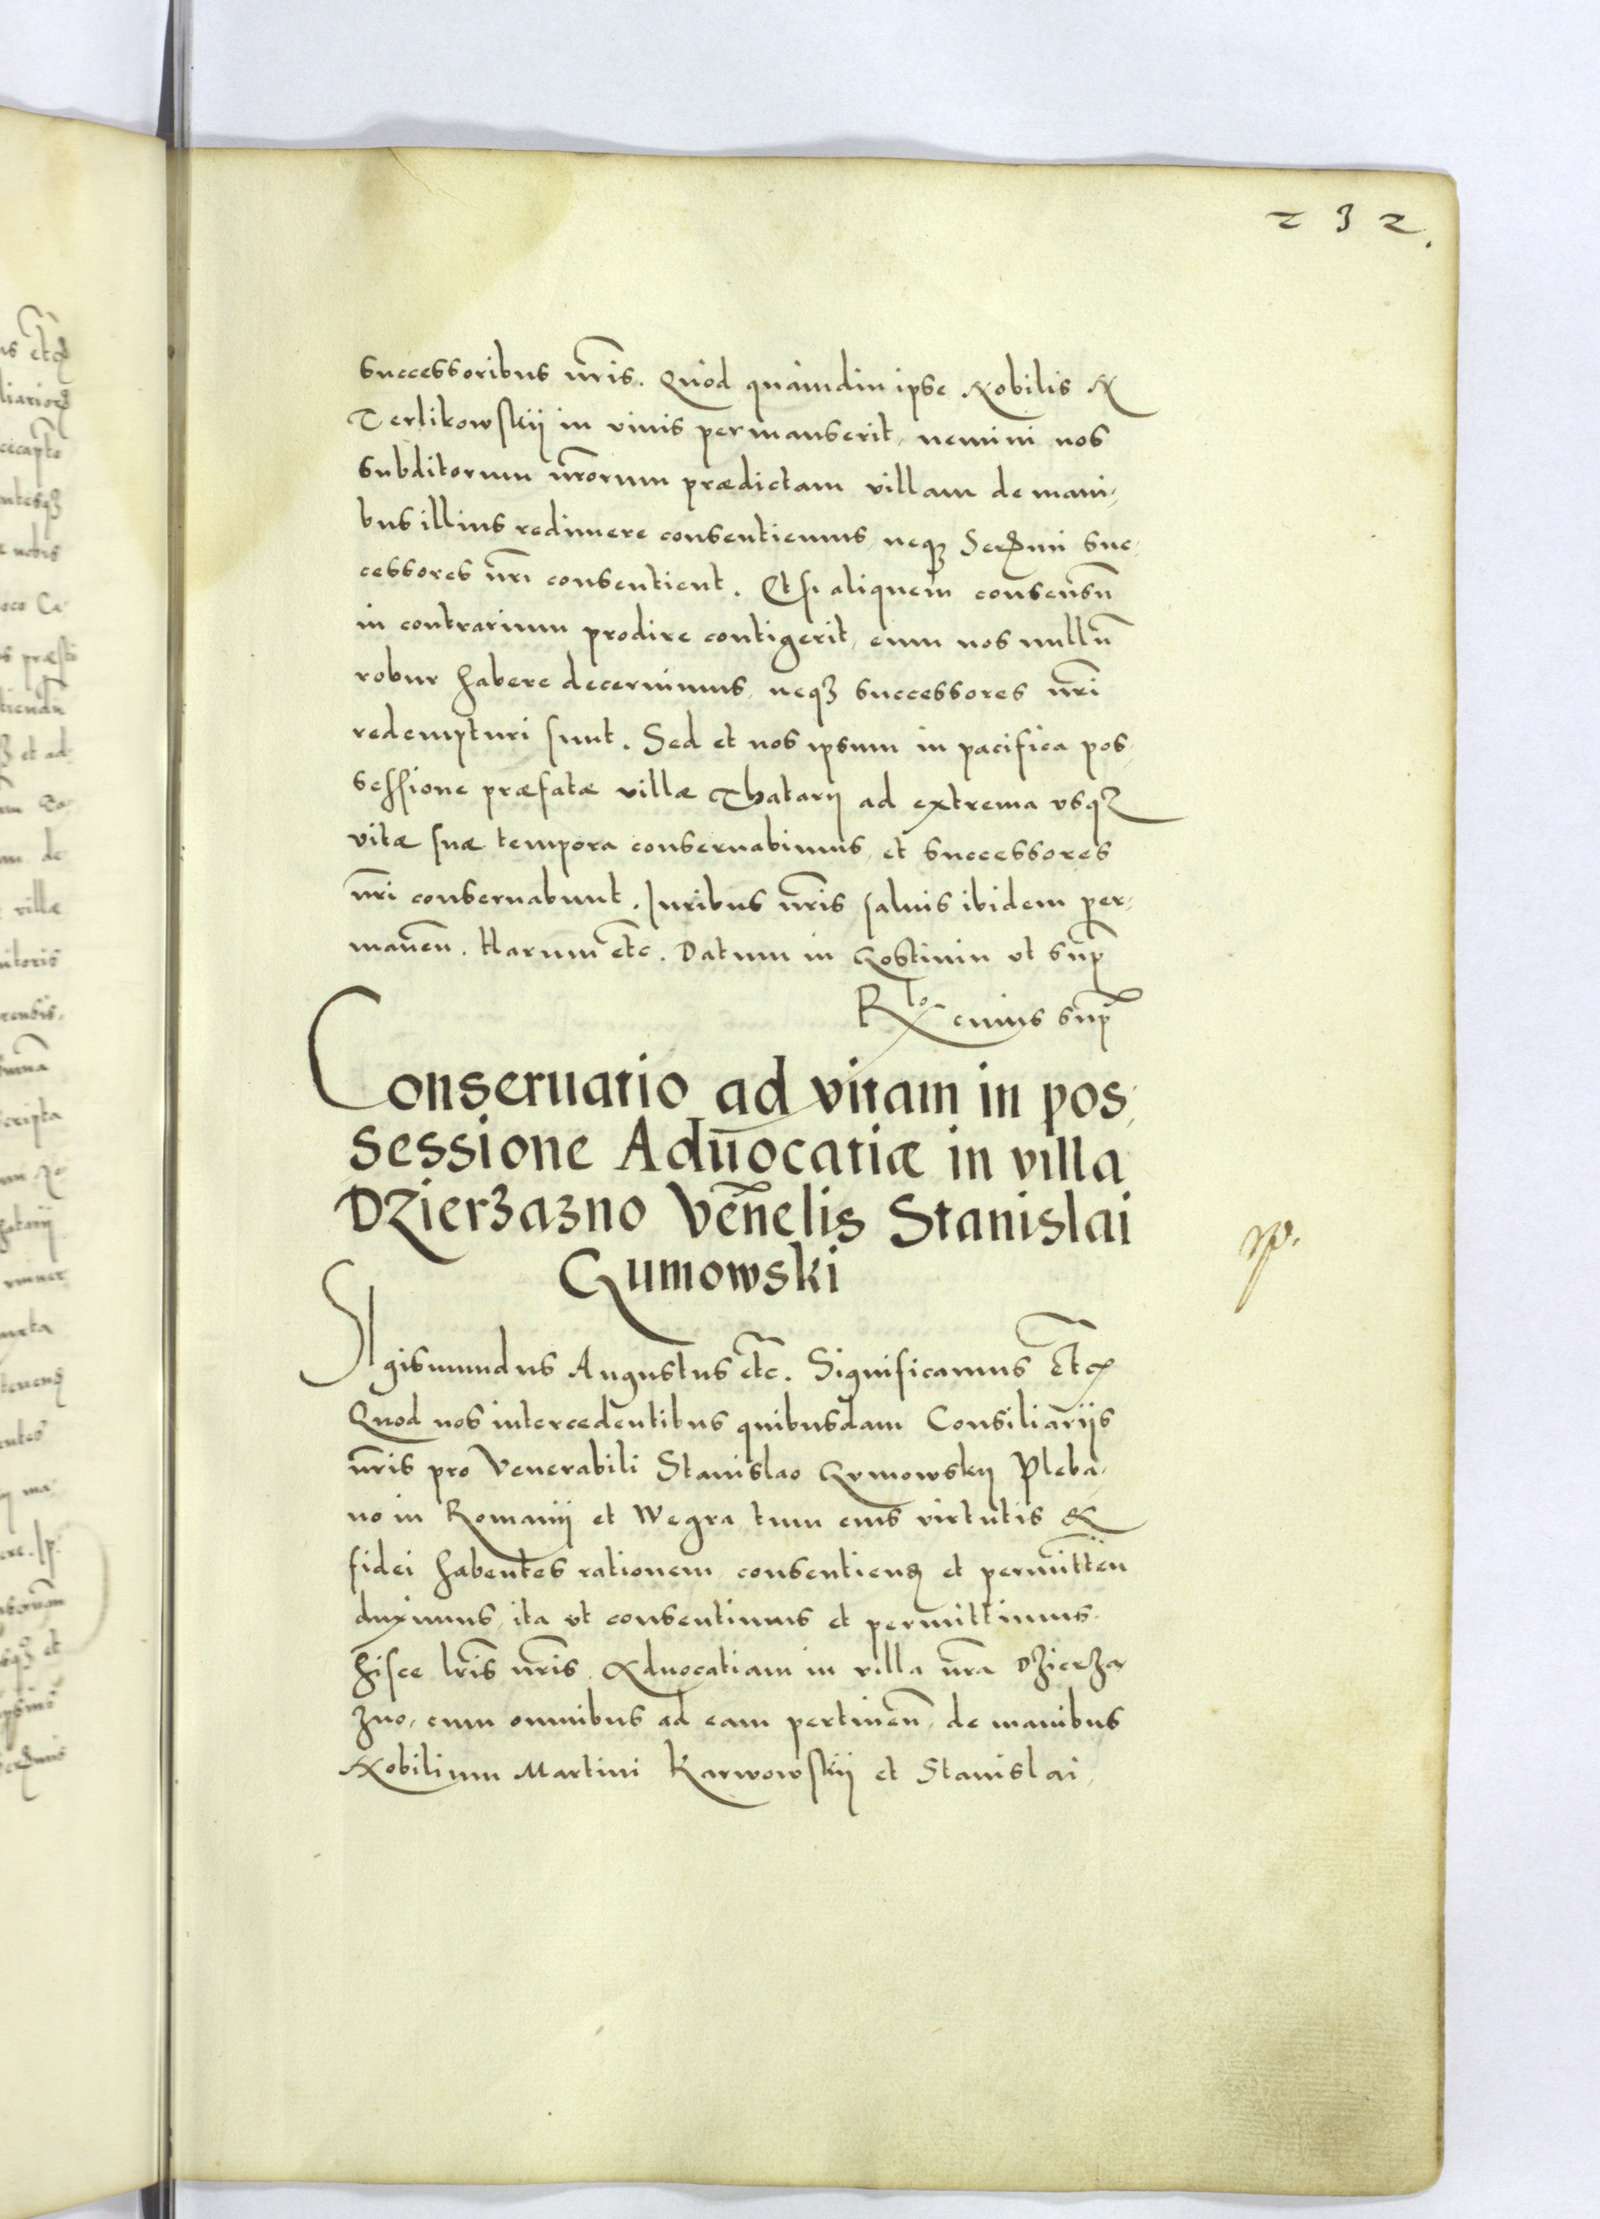 232.
successoribus nr̃is. Quod quamdiu ipse Nobilis N
Terlikowskij in viuis permanserit, nemini nos
subditorum nr̃orum prædictam villam de mani,
bus illius redimere consentiemus, neq3 Ser̃mi suc,
cessores nr̃i consentient. Et si aliquem consensũ
in contrarium prodire contigerit, eum nos nullũ
robur habere decernimus, neq3 successores nr̃i
redempturi sunt. Sed et nos ipsum in pacifica pos,
sessione præfatæ villæ Thatary ad extrema vsq3
vitæ suæ tempora conseruabimus, et successores
nr̃i conseruabunt. Juribus nr̃is saluis ibidem per,
maneñ. Harum etc̃. Datum in Gostinin vt sup̃
R̃to cuius sup̃
Conseruatio ad vitam in pos,
sessione Aduocatiæ in villa
Dzierzazno Veñelis Stanislai
Gumowski
Sigismundus Augustus etc̃. Significamus etc̃
Quod nos intercedentibus quibusdam Consiliariis
nr̃is pro Venerabili Stanislao Gumowsky Pleba,
no in Romany et Wegra tum eius virtutis &
fidei habentes rationem consentienḍ et permitteñ
duximus, ita vt consentimus et permittimus
hisce lr̃is nr̃is, Aduocatiam in villa nr̃a Dzierza
zno, cum omnibus ad eam pertineñ, de manibus
Nobilium Martini Karwowskij et Stanislai,